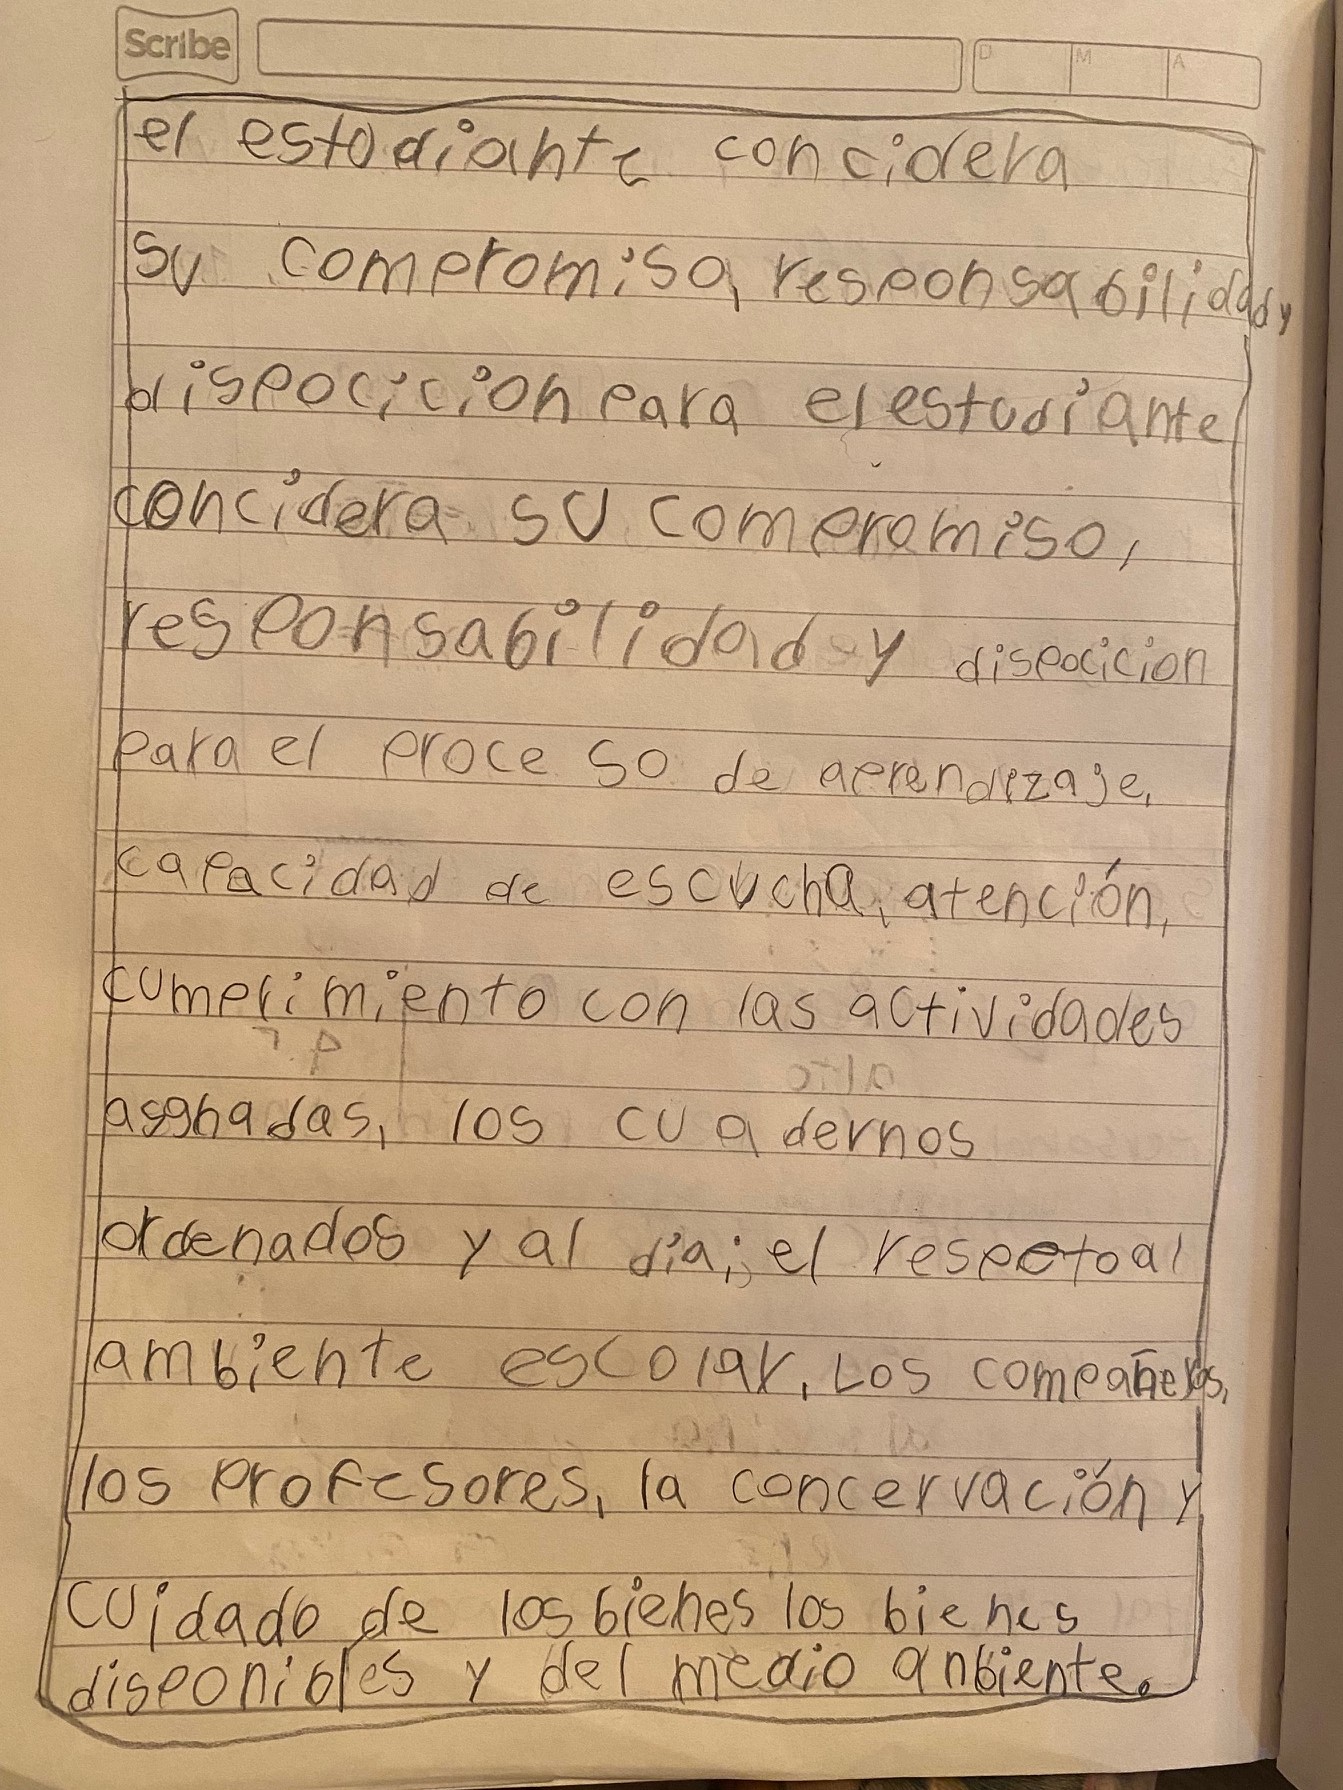 Scribe
D M A
el estodiante concidera
su compromiso, responsabilidad y
dispocicion para el estudiante
concidera su compromiso,
responsabilidad y dispocicion
para el proceso de aprendizaje,
capacidad de escucha, atención,
cumplimiento con las actividades
asgnadas, los cuadernos
ordenados y al día; el respeto al
ambiente escolar, Los compañeros,
los profesores, la concervación y
cuidado de los bienes los bienes
disponibles y del medio anbiente.